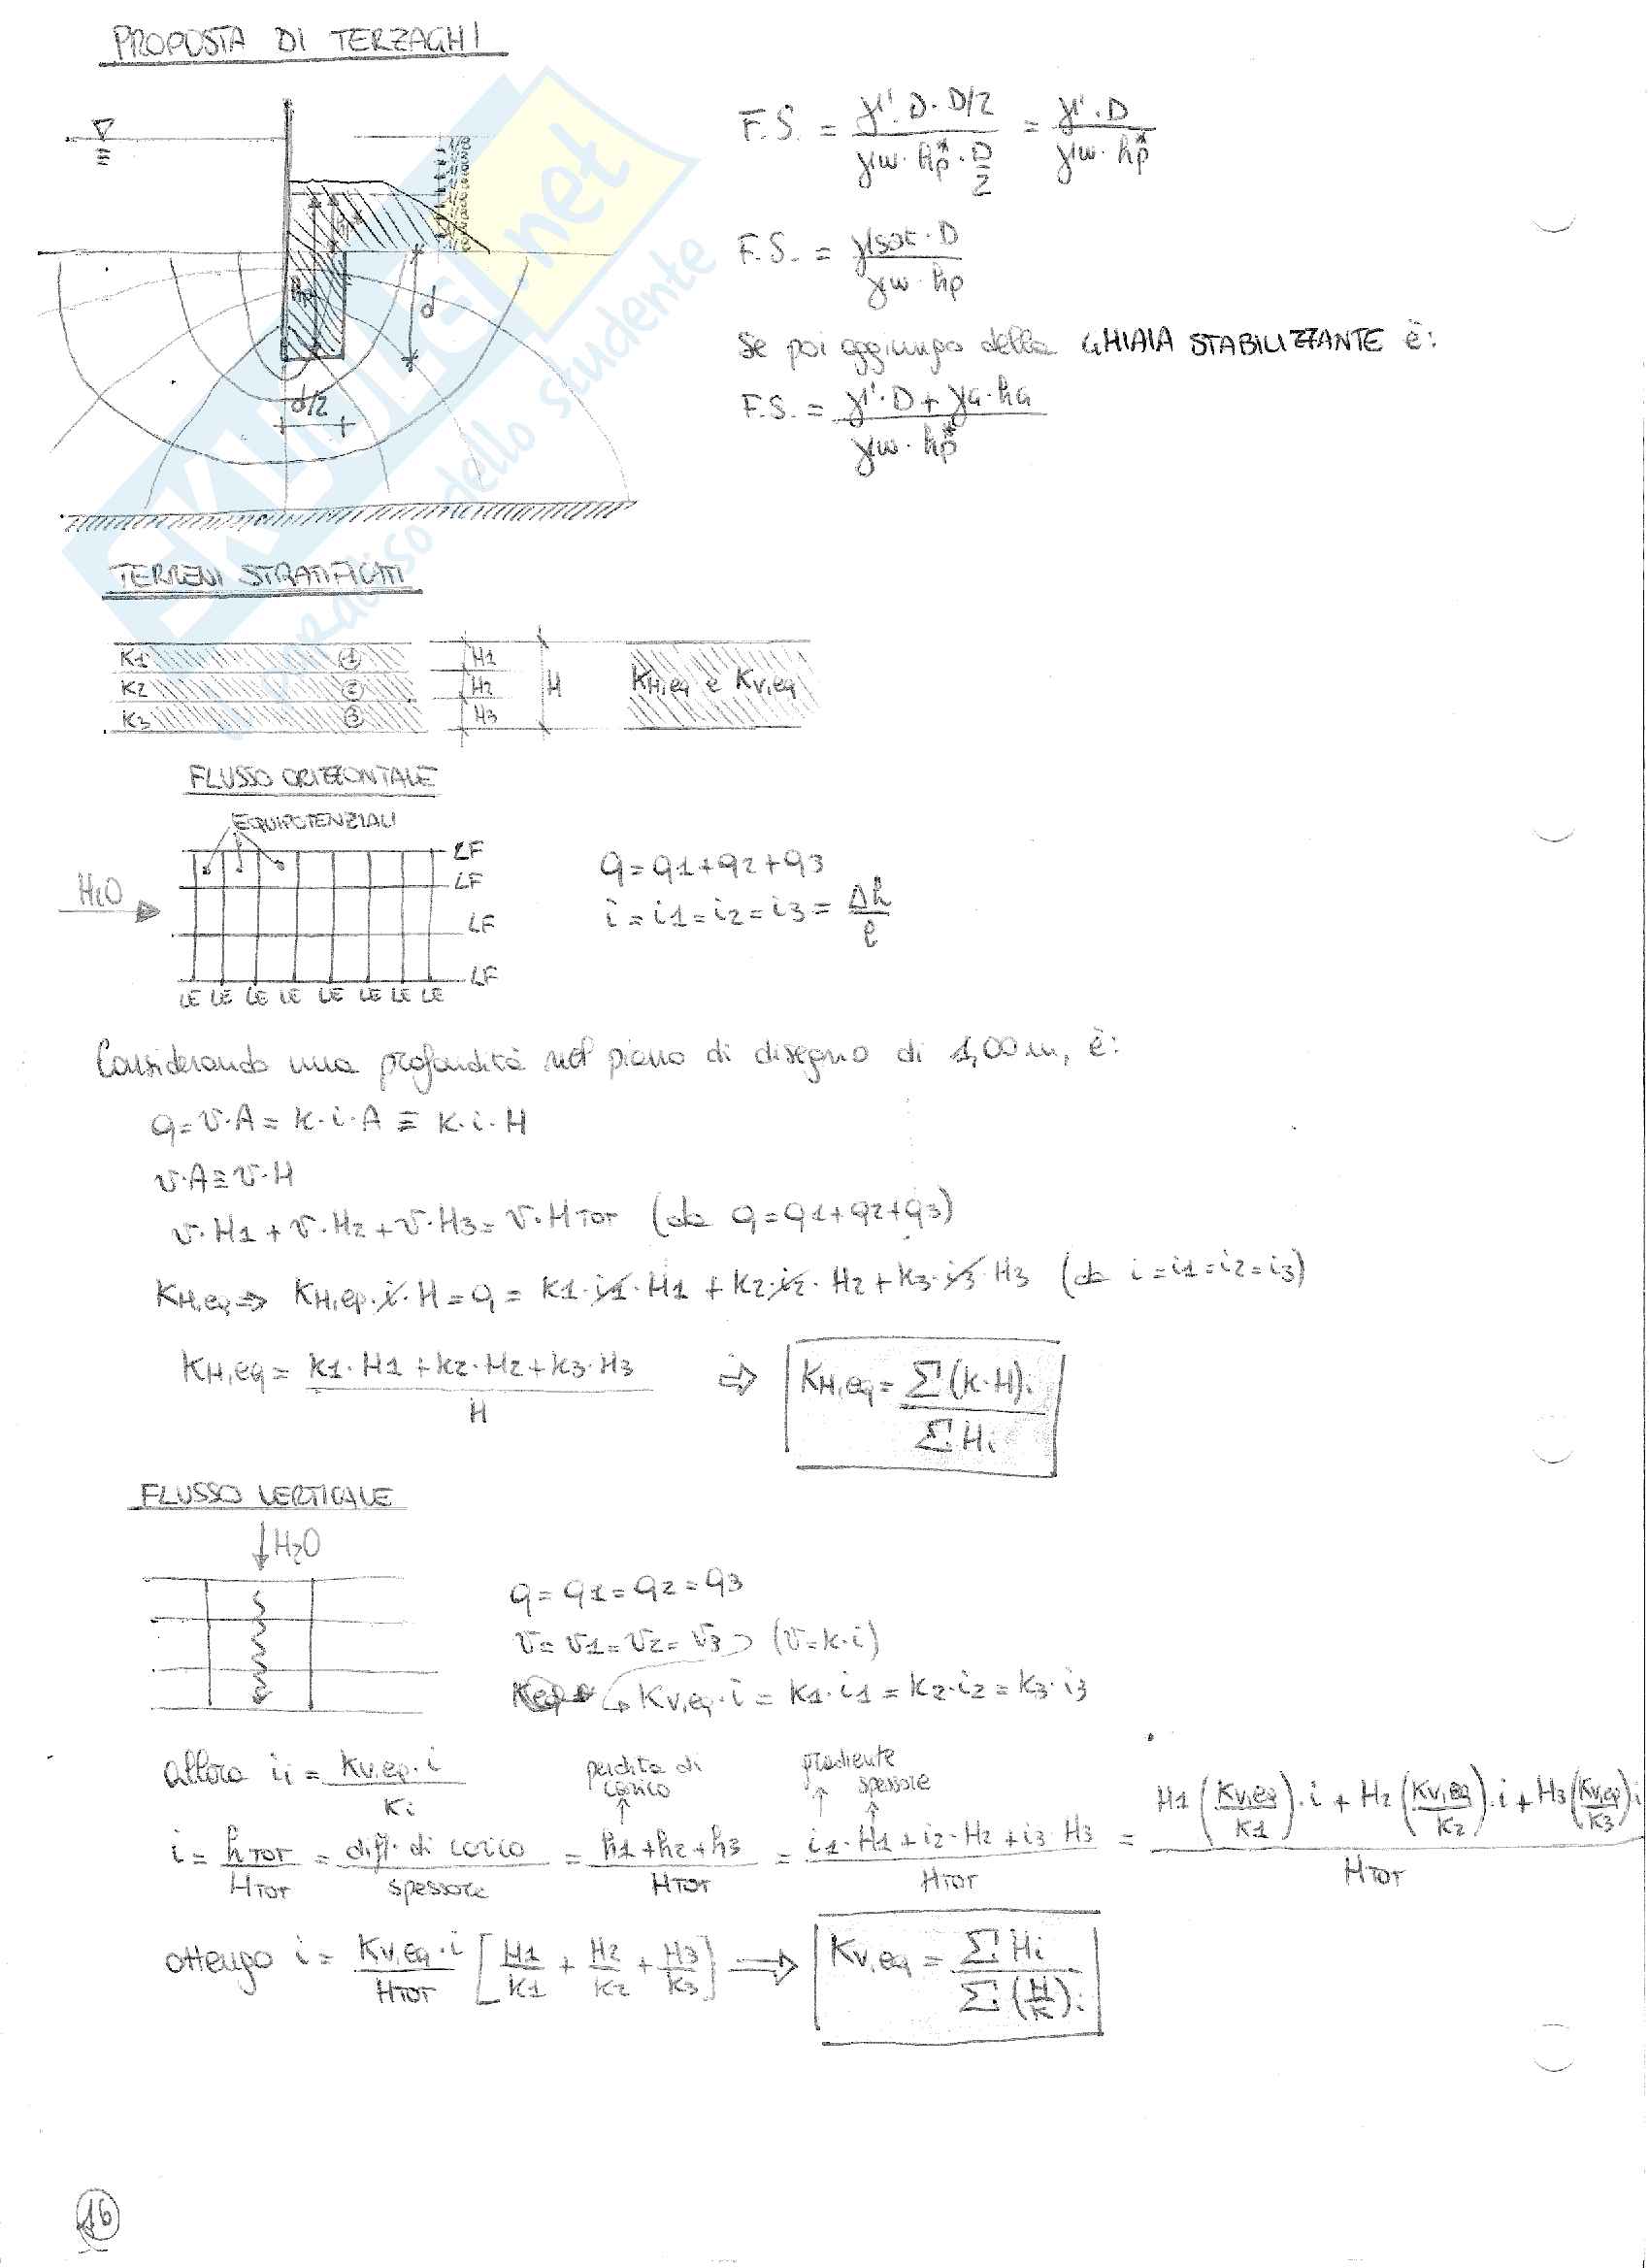 PROPOSTA DI TERZAGHI
F.S. = γ'·D·D/2 / γw·hp*·D/2 = γ'·D / γw·hp*
F.S. = γsat·D / γw·hp
hp*
hp
d
d/2
Se poi aggiungo della GHIAIA STABILIZZANTE è:
F.S. = γ'·D + γG·hG / γw·hp*
SKUOLA.net
paradiso dello studente
TERRENI STRATIFICATI
K1 1 H1
K2 2 H2 H KH,eq e KV,eq
K3 3 H3
FLUSSO ORIZZONTALE
EQUIPOTENZIALI
LF
LF
H2O
LF
LF
LE LE LE LE LE LE LE LE
q = q1+q2+q3
i = i1 = i2 = i3 = Δh / l
Considerando una profondità nel piano di disegno di 1,00 m, è:
q = v·A = k·i·A ≡ k·i·H
v·A ≡ v·H
v·H1 + v·H2 + v·H3 = v·HTOT (da q=q1+q2+q3)
KH,eq ⇒ KH,eq·i·H = q = k1·i1·H1 + k2·i2·H2 + k3·i3·H3 (da i=i1=i2=i3)
KH,eq = k1·H1 + k2·H2 + k3·H3 / H ⇒ KH,eq = Σ(k·H)i / ΣHi
FLUSSO VERTICALE
H2O
q = q1 = q2 = q3
v = v1 = v2 = v3 (v=k·i)
Keq KV,eq·i = k1·i1 = k2·i2 = k3·i3
allora ii = KV,eq·i / Ki
perdita di carico
gradiente
spessore
i = hTOT / HTOT = diff. di carico / spessore = h1+h2+h3 / HTOT = i1·H1 + i2·H2 + i3·H3 / HTOT = H1(KV,eq/K1)·i + H2(KV,eq/K2)·i + H3(KV,eq/K3)i / HTOT
ottengo i = KV,eq·i / HTOT [H1/K1 + H2/K2 + H3/K3] ⇒ KV,eq = ΣHi / Σ(H/K)i
16